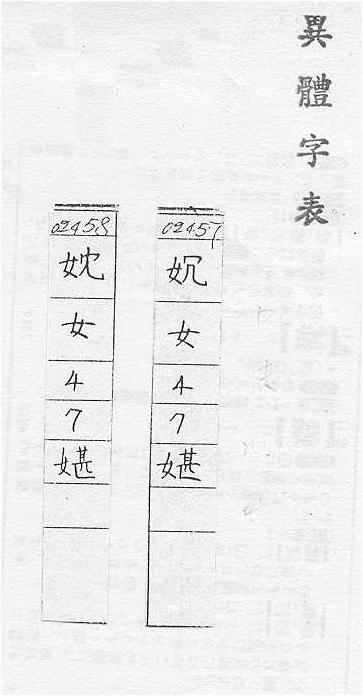 異體字表
02457
妉
女
4
7
媅
02458
妉
女
4
7
媅